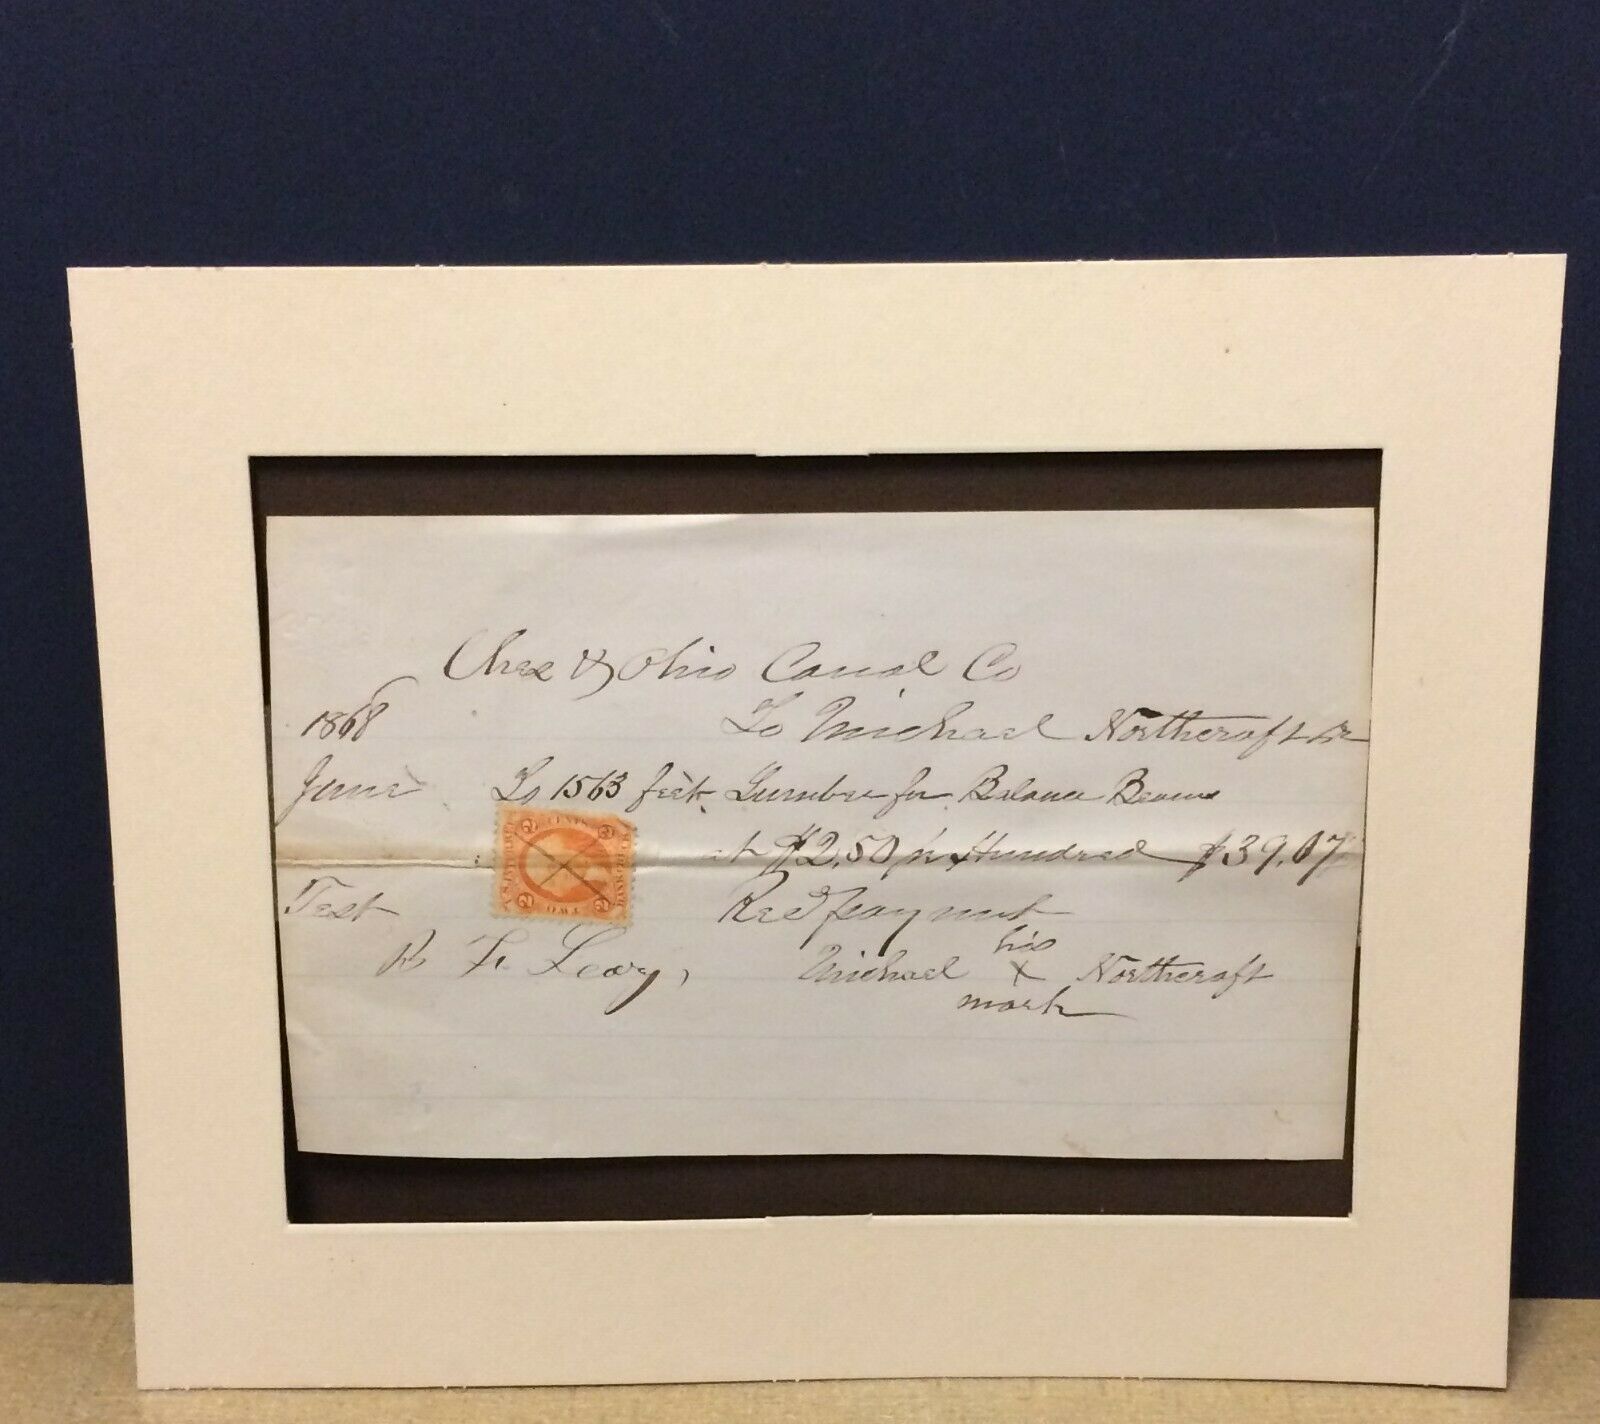 Ches & Ohio Canal Co
1868 To Michael Northcraft Dr
June To 1563 feet Lumber for Balance Beams
at $2,50 pr Hundred $39,07
Test Recd payment
R F. Leary, Michael his x mark Northcraft
2 CENTS 2
U.S. INTER. REV.
BANK CHECK
2 TWO 2